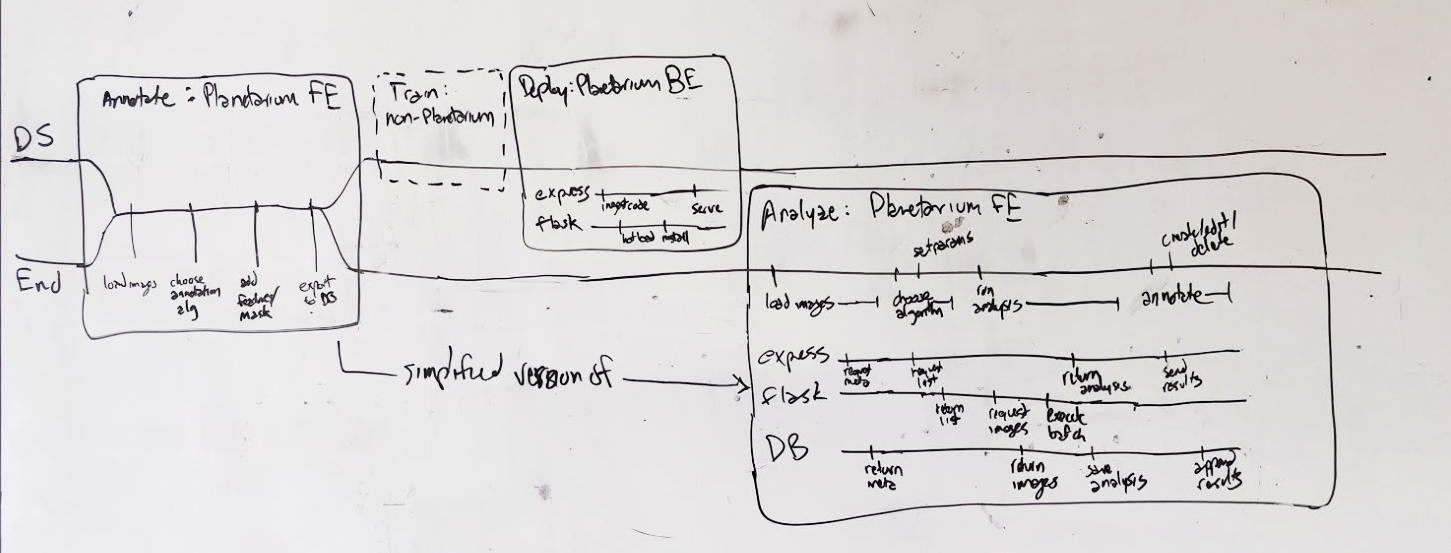 DS
End
Annotate : Planetarium FE
load images
choose
annotation
alg
add
feature/
mask
export
to DB
Train:
non-Planetarium
Deploy: Planetarium BE
express
ingest code
serve
flask
hot load
install
Analyze: Planetarium FE
set params
create/edit/
delete
load images
choose
algorithm
run
analysis
annotate
simplified version of
express
request
meta
request
list
return
analysis
send
results
flask
return
list
request
images
execute
batch
DB
return
meta
return
images
save
analysis
append
results